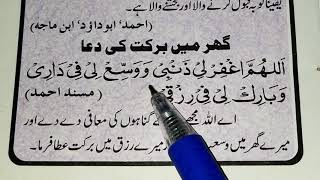 یقیناً توبہ قبول کرنے والا اور بخشنے والا ہے۔
(احمد، ابوداؤد، ابن ماجہ)
گھر میں برکت کی دعا
اَللّٰهُمَّ اغْفِرْ لِیْ ذَنْۢبِیْ وَ وَسِّعْ لِیْ فِیْ دَارِیْ
وَ بَارِكْ لِیْ فِیْ رِزْقِیْ (مسند احمد)
اے اللہ گناہوں کی معافی دے دے اور
میرے گھر میں میرے رزق میں برکت عطا فرما۔